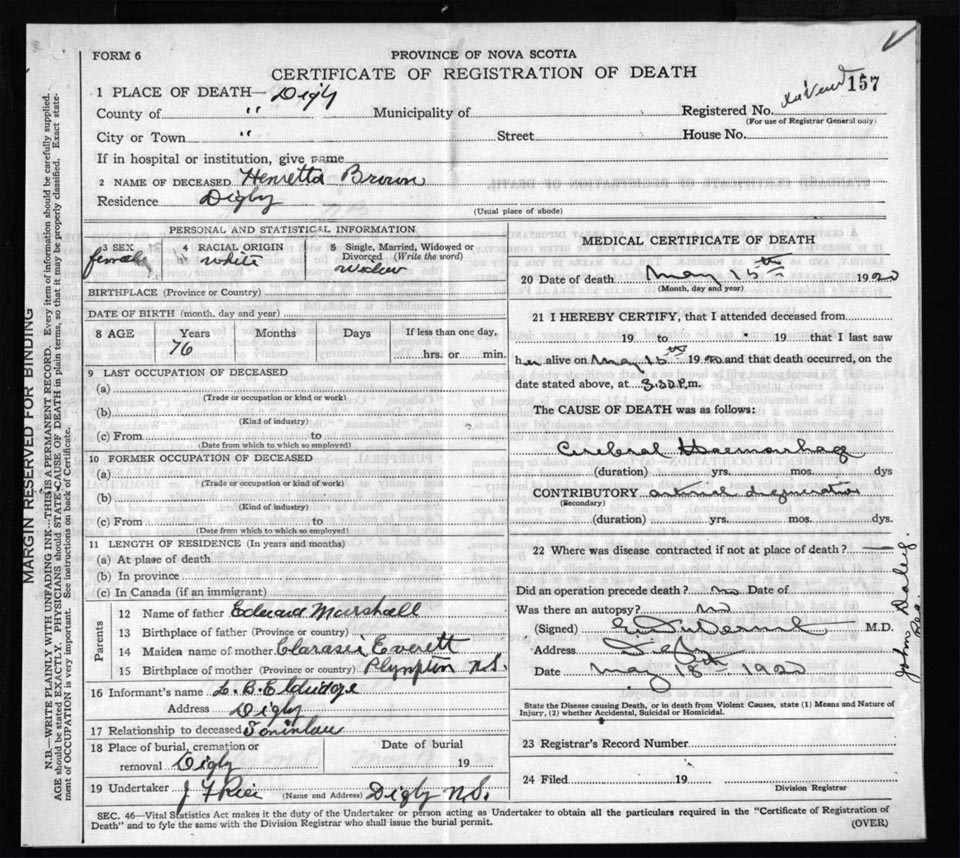 FORM 6
PROVINCE OF NOVA SCOTIA
CERTIFICATE OF REGISTRATION OF DEATH
157
1 PLACE OF DEATH— Digby
County of " Municipality of Registered No.
(For use of Registrar General only)
City or Town " Street House No.
If in hospital or institution, give name
2 NAME OF DECEASED Henretta Brown
Residence Digby
(Usual place of abode)
PERSONAL AND STATISTICAL INFORMATION
3 SEX 4 RACIAL ORIGIN 5 Single, Married, Widowed or Divorced (Write the word)
female white widow
BIRTHPLACE (Province or Country)
DATE OF BIRTH (month, day and year)
8 AGE Years Months Days If less than one day,
76 hrs. or min.
9 LAST OCCUPATION OF DECEASED
(a)
(Trade or occupation or kind or work)
(b)
(Kind of industry)
(c) From to
(Date from which to which so employed)
10 FORMER OCCUPATION OF DECEASED
(a)
(Trade or occupation or kind of work)
(b)
(Kind of industry)
(c) From to
(Date from which to which so employed)
11 LENGTH OF RESIDENCE (In years and months)
(a) At place of death
(b) In province
(c) In Canada (if an immigrant)
Parents
12 Name of father Edward Marshall
13 Birthplace of father (Province or country)
14 Maiden name of mother Everett
15 Birthplace of mother (Province or country) Plympton N.S.
16 Informant's name L. B. Eldridge
Address Digby
17 Relationship to deceased Soninlaw
18 Place of burial, cremation or removal Digby Date of burial 19
19 Undertaker J F Rice (Name and Address) Digby N.S.
MEDICAL CERTIFICATE OF DEATH
20 Date of death May 15th 1920
(Month, day and year)
21 I HEREBY CERTIFY, that I attended deceased from
19 to 19 that I last saw
her alive on May 15th 1920 and that death occurred, on the
date stated above, at 3.30 P.m.
The CAUSE OF DEATH was as follows:
Cerebral Haemorrhage
(duration) yrs. mos. dys
CONTRIBUTORY arterial degeneration
(Secondary)
(duration) yrs. mos. dys.
22 Where was disease contracted if not at place of death? —
Did an operation precede death? no Date of
Was there an autopsy? no
(Signed) M.D.
Address Digby
Date May 18th 1920
State the Disease causing Death, or in death from Violent Causes, state (1) Means and Nature of
Injury, (2) whether Accidental, Suicidal or Homicidal.
23 Registrar's Record Number
24 Filed 19
Division Registrar
John Daley
SEC. 46—Vital Statistics Act makes it the duty of the Undertaker or person acting as Undertaker to obtain all the particulars required in the "Certificate of Registration of
Death" and to fyle the same with the Division Registrar who shall issue the burial permit. (OVER)
MARGIN RESERVED FOR BINDING
N.B.—WRITE PLAINLY WITH UNFADING INK—THIS IS A PERMANENT RECORD. Every item of information should be carefully supplied.
AGE should be stated EXACTLY. PHYSICIANS should STATE CAUSE OF DEATH in plain terms, so that it may be properly classified. Exact state-
ment of OCCUPATION is very important. See instructions on back of Certificate.